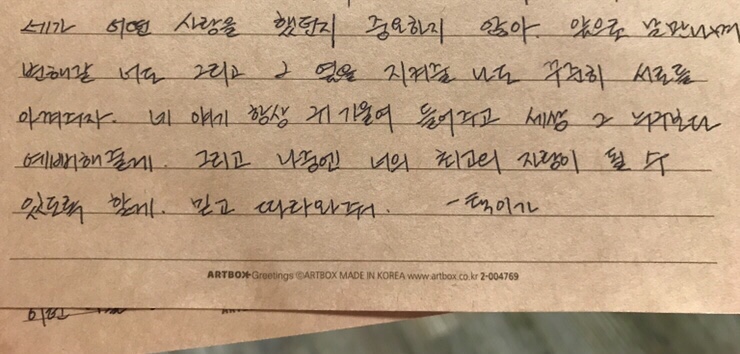 네가 어떤 사랑을 했던지 중요하지 않아. 앞으로 날 만나며
변해갈 너도 그리고 그 옆을 지켜줄 나도 꾸준히 서로를
아껴주자. 네 얘기 항상 귀 기울여 들어주고 세상 그 누구보다
예뻐해줄게. 그리고 나중엔 너의 최고의 자랑이 될 수
있도록 할게. 믿고 따라와줘. -택이가
ARTBOX Greetings ⓒARTBOX MADE IN KOREA www.artbox.co.kr 2-004769